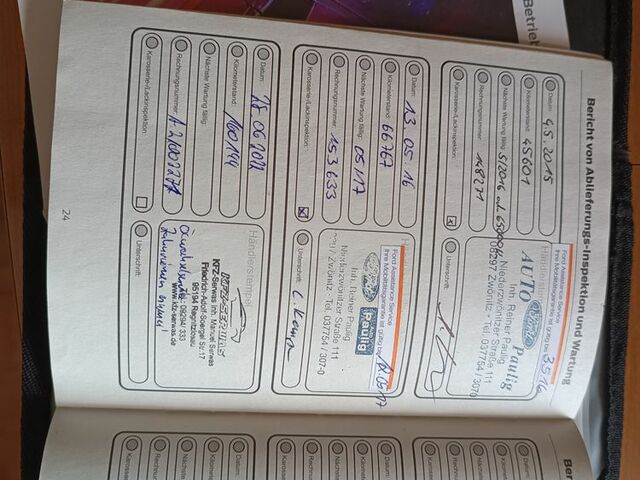 Betrieb
Bericht von Ablieferungs-Inspektion und Wartung
Datum: 4.5.2015
Kilometerstand: 45601
Nächste Wartung fällig: 5/2016 od 65000km
Rechnungsnummer: 148271
Karosserie-/Lackinspektion:
Händlerstempel
Ford Assistance Service
Ihre Mobilitätsgarantie ist gültig bis: 3.5.16
AUTO Paulig
Inh. Reiner Paulig
Niederzwönitzer Straße 111
08297 Zwönitz · Tel. 037754 / 3070
Unterschrift:
Datum: 13 05 16
Kilometerstand: 66767
Nächste Wartung fällig: 05/17
Rechnungsnummer: 153633
Karosserie-/Lackinspektion:
Ford Assistance Service
Ihre Mobilitätsgarantie ist gültig bis:
Paulig
Inh. Reiner Paulig
Niederzwönitzer Straße 111
Zwönitz · Tel. 037754 / 307-0
Unterschrift:
Datum:
Kilometerstand: 100144
Nächste Wartung fällig:
Rechnungsnummer:
Karosserie-/Lackinspektion:
Händlerstempel
KFZ-Serwas Inh. Manuel Serwas
Friedrich-Adolf-Soergel Str. 17
95194 Regnitzlosau
Tel. 09294 333
www.kfz-serwas.de
Zahnriemen
Unterschrift:
24
Datum: